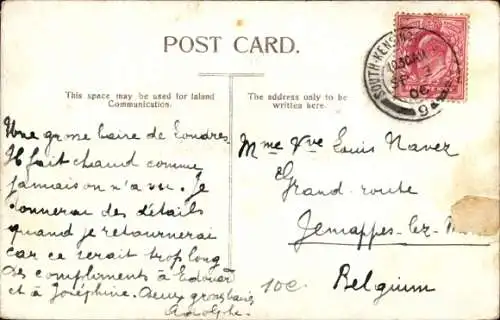 POST CARD.
This space may be used for Inland
Communication.
The address only to be
written here.
SOUTH-KENSING
10.30 AM
SP 3
06
9
Une grosse baise de Londres.
Il fait chaud comme
jamais on n'a vu. Je
donnerai des détails
quand je retournerai
car ce serait trop long
Des compliments à Edouard
et à Joséphine. Deux gros bais
Adolphe.
Mme Vve Louis Navez
Grand-route
Jemappes-lez-Mons
Belgium
10c.